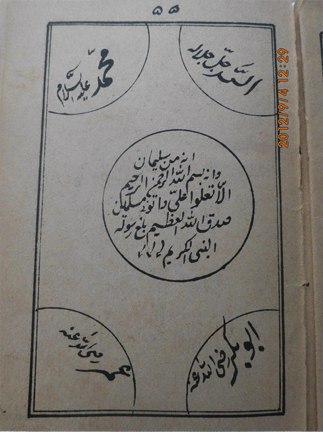 ٥٥
الله جل جلاله
محمد عليه السلام
انه من سليمان
وانه بسم الله الرحمن الرحيم
الا تعلوا على واتونى مسلمين
صدق الله العظيم بلغ رسوله
النبى الكريم
ابو بكر رضى الله عنه
عمر رضى الله عنه
2012/9/4 12:29